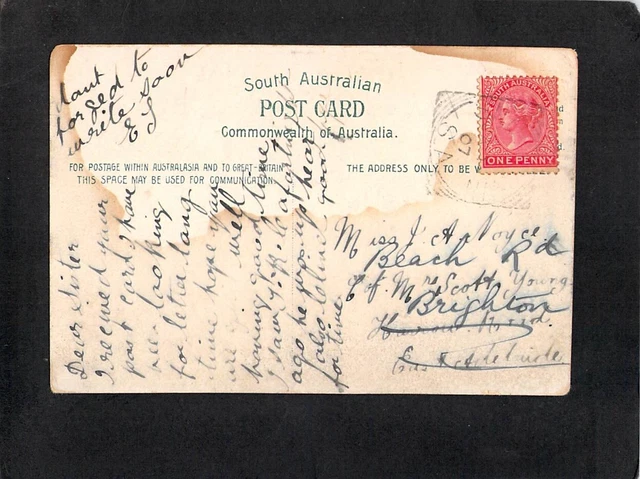 dont
forged to
write soon
E S
South Australian
POST CARD
Commonwealth of Australia.
FOR POSTAGE WITHIN AUSTRALASIA AND TO GREAT BRITAIN
THIS SPACE MAY BE USED FOR COMMUNICATION.
THE ADDRESS ONLY TO BE
SOUTH AUSTRALIA
ONE PENNY
07
S.A
Dear Sister
I received your
post card I have
been looking
for letter long
time hope you
well
having good time
I saw
ago he
also
for time
Miss J. A.
Beach Rd
C/o Mrs Scott Young
Brighton
East Adelaide